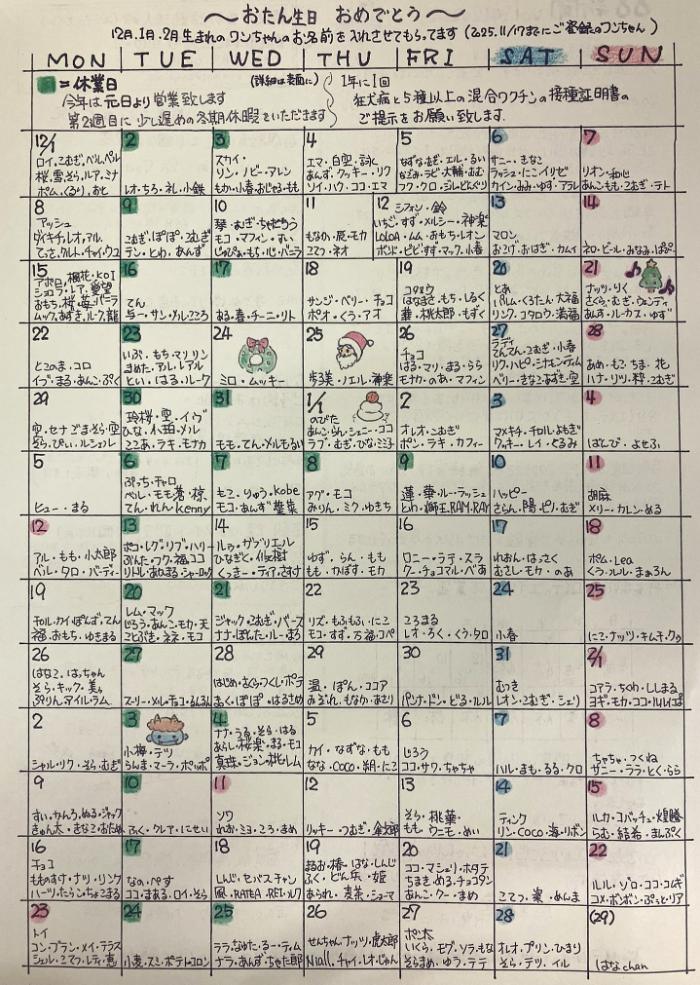 ～おたん生日 おめでとう～
12月.1月.2月生まれのワンちゃんのお名前を入れさせてもらってます(2025.11/17までにご登録のワンちゃん)
MON TUE WED THU FRI SAT SUN
=休業日 (詳細は表面に)
今年は元日より営業致します
第2週目に少し遅めの冬期休暇をいただきます
1年に1回
狂犬病と5種以上の混合ワクチンの接種証明書の
ご提示をお願い致します
12/1
ロイ.こむぎ.ベル.ペル
桜.雪.らル.ルア.ミナ
ポム.くるり.おと
2
レオ・ちろ・礼・小鉄
3
スカイ・
リン・ノビー・アレン
もか・小春.おじゃる・もも
4
エマ・白空・詩
あんず・クッキー・リク
ソイ・ハク・ココ・エマ
5
なずな・むぎ・エル・るい
なごみ・ラビ・大輔・おむ
フク・クロ・ジル・どんぐり
6
サニー・きなこ
ラッシュ・にこ・イリゼ
カイン・みみ・ゆず・アラレ
7
リオン・和心
あんこもも・こむぎ・テト
8
アッシュ
ダイキチ.レオ.アル.
てっさ.クルト・チャイ.ウユ
9
こむぎ.ぽぽ.こむぎ
テン・とわ.あんず
10
琴・むぎ・ちゃとら
モコ・マフィン・すい
じゅぴぁ・もち・心・バニラ
11
もなか・辰・モカ
こてつ・ネオ
12 シフォン・鈴
いちご・すず・メルシー・神楽
LOLOA・ムム・おもち・レオン
ボンド・ビビ・すず・マック・小春
13
マロン
おこげ・おはぎ・カムイ
14
ネロ・ビール・みなみ・ぱぴ
15
アポロ・楓花・koI
ショコラ・レア・愛望
おもち・桜・苺・バーラ
ムック.あずき・ルーク.龍
16
てん
与一・サン・メル・ころ
17
ある・春・チーニ・リト
18
サンジ・ベリー・チョコ
ポオ・くう・アオ
19
コタロウ
はなまさ・もち・しるく
蓮・桃太郎・もずく
20
とあ
パルム・くるたん・大福
リンク・コタロウ・満福
21
ナッツ・りく
さくら・むぎ・ウェンディ
あんず・ルーカス・ゆず
22
とこのま・コロ
イブ・まる・あんこ・ぷく
23
いぶ・もも・マリリン
きめた・アル・レアル
とい・はる・ルーク
24
ミロ・ムッキー
25
歩3美・ノエル・神楽
26
チョコ
はる・マリ・まる・らら
モナカ・のあ・マフィン
27
ラテ
てんてん・こむぎ・小春
リク・ハピ・シナモン・ティム
ベリー・きなこ・あずき・空
28
あめ・もこ・ちま・花
ハナ・リツ・粋・こむぎ
29
空・セナ・ごま・そら・空
そら・ぴぃ・ルシェル
30
玲桜・空・イヴ
ひな・小珀・メル
ここあ・ラキ・モナカ
31
もも・てん・メル・もるい
1/1
のぴた
あんこ・らん・シェニー・ココ
ラブ・むぎ・ひな・ミミ子
2
オレオ・こむぎ
ポン・ラキ・カフィー
3
マメキチ・チロル・よもぎ
クッキー・レイ・とろみ
4
はんび・よせふ
5
ヒュー・まる
6
ぷっち・チャロ
ベル・モモ・茜・椋
てん・れん・kenny
7
もこ・りゅう・kobe
モコ・あんず・菫菜
8
アグ・モコ
みりん・ミク・ゆきち
9
蓮・華・ルー・ラッシュ
とわ・獅王・RAM・RAY
10
ハッピー
さらん・陽・ピリ・むぎ
11
胡麻
メリー・カレン・める
12
アル・もも・小太郎
ベル・タロ・バーディー
13
ポコ・レグ・リブ・ハリー
ぷんた・フク・福・ココ
リトル・あわまる・シャーロック
14
ルゥ・ガブリエル
ひなぎく・伽樹
くっきー・ティア・さすけ
15
ゆず・らん・もも
もも・かぼす・モカ
16
ロニー・ラテ・スラ
クー・チョコマル・べあ
17
れおん・はっさく
むさし・モカ・のあ
18
ポム・Lea
くう・フルル・まぁろん
19
チロル・カイ・ぽんず・てん
福・おもち・ゆきまる
20
レム・マック
じろう・あんこ・モカ・天
ことぶき・ネネ・モコ
21
ジャック・こむぎ・バース
ナナ・ぼたん・ルー・まろ
22
リズ・もふもふ・にこ
モコ・すず・万福・コパ
23
ころまる
レオ・ろく・くう・タロ
24
小春
25
にこ・ナッツ・キムチ・クゥ
26
はなこ・はっちゃん
そら・キック・美ゥ
ぷりりん・アイル・ラム
27
スーリー・メル・チョコ・るんるん
28
はじめ・さくら・つくし・ポテ
あく・ぽぽ・はるさめ
29
温・ぽん・ココア
みるん・もなか・あさり
30
パンナ・ドン・どる・ルル
31
むつき
レオン・こむぎ・シェリ
2/1
コアラ・ちoh・ししまる
コギ・モカ・ココ・ルルイエ
2
シャル・リク・そら・むぎ
3
小梅・テツ
うんま・マーラ・ポッポ
4
ナナ・うる・そら・はる
あらし・桜楽・まる・モコ
真珠・ジョン・桃・レム
5
カイ・なずな・もも
なな・COCO・朔・にこ
6
じろう
ココ・サワ・ちゃちゃ
7
ハル・まも・るる・クロ
8
ちゃちゃ・つくね
サニー・ララ・とく・らら
9
すい・かんろ・ぬる・ジャック
きゅん太・きなこ・おたぬ
10
ふく・クレア・にせい
11
ソワ
れお・ミヨ・ころ・まめ
12
リッキー・つむぎ・金次郎
13
そら・桃華・
もも・ウニモ・めい
14
ティンク
リン・COCO・海・リボン
15
ルカ・コバッチュ・煌騰
らむ・結希・まんぷく
16
チョコ
ももすけ・ナツ・リンク
ハーツ・たらこ・ちょこまる
17
なの・ぺす
ココ・まある・ロイ・そら
18
しんじ・セバスチャン
風・RATEA・REI・ルク
19
まるお・椿・はな・しんじ
ふく・どん兵・姫
あられ・麦茶・ショーマ
20
ココ・マシュリ・ホタテ
ちまき・める・チョコタン
あんこ・クー・まめ
21
こてつ・楽・めんま
22
ルル・ゾロ・ココ・コムギ
コメ・ボンボン・ぷっと・リア
23
トイ
コン・プラン・メイ・テラス
シェル・こてつ・レディ・恵
24
小麦・スミ・ポテト・コロン
25
ララ・なゅた・るー・ティム
ナラ・あんず・ちゃた郎
26
せんちゃん・ナッツ・虎太郎
Niall・チャイ・レオ・じゅん
27
ポン太
いくら・モグ・ソラ・もな
そらまめ・ゆう・テテ
28
オレオ・プリン・ひまり
そら・テツ・イル
(29)
はなchan